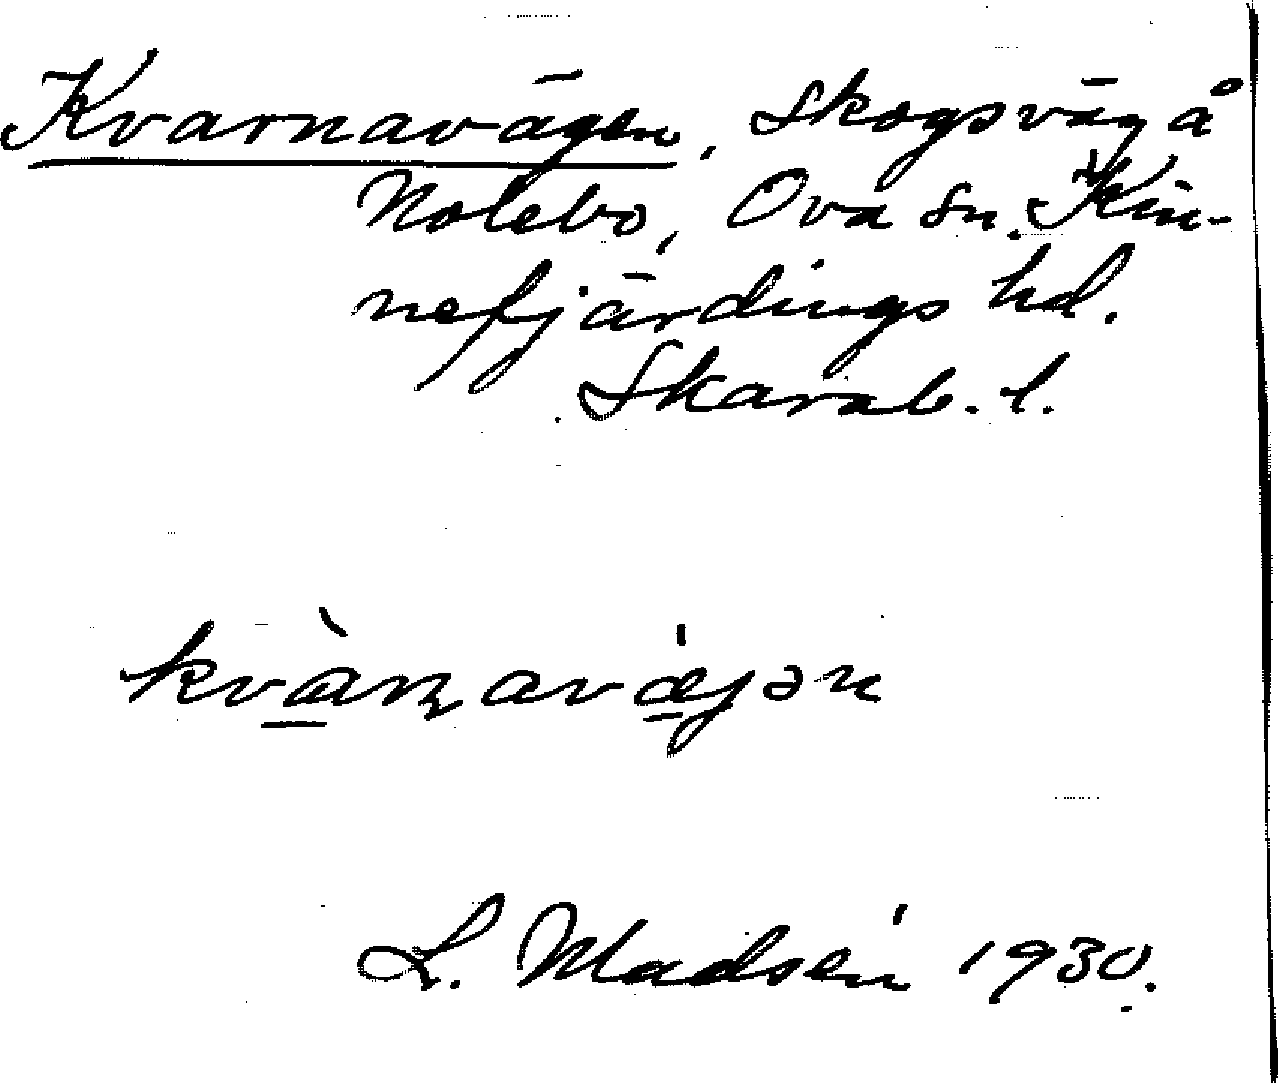 Kvarnavägen, Skogsväg å
Nolebo, Ova sn. Kin-
nefjärdings hd.
Skarab. l.
kvà̱ɳavǽ̱jən
L. Madsén 1930.